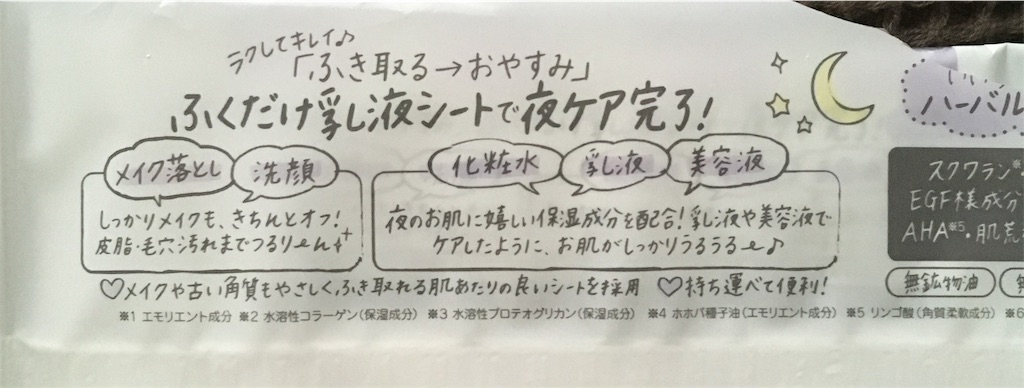 ラクしてキレイ♪
「ふき取る→おやすみ」
ふくだけ乳液シートで夜ケア完了!
メイク落とし 洗顔
しっかりメイクも、きちんとオフ!
皮脂・毛穴汚れまでつるりーん
化粧水 乳液 美容液
夜のお肌に嬉しい保湿成分を配合!乳液や美容液で
ケアしたように、お肌がしっかりうるうる〜♪
♡メイクや古い角質もやさしく、ふき取れる肌あたりの良いシートを採用 ♡持ち運べて便利!
※1 エモリエント成分 ※2 水溶性コラーゲン(保湿成分) ※3 水溶性プロテオグリカン(保湿成分) ※4 ホホバ種子油(エモリエント成分) ※5 リンゴ酸(角質柔軟成分) ※6
ハーバル
スクワラン※
EGF様成分
AHA※5・肌荒
無鉱物油